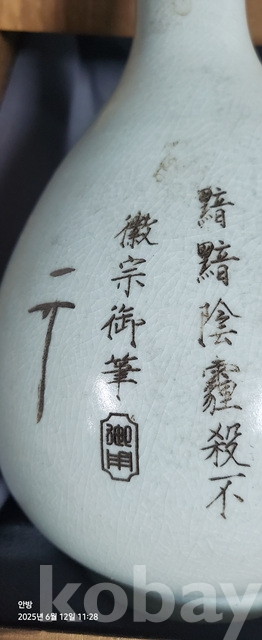 黯黯陰霾殺不
徽宗御筆
御用
안방
2025년 6월 12일 11:28
kobay